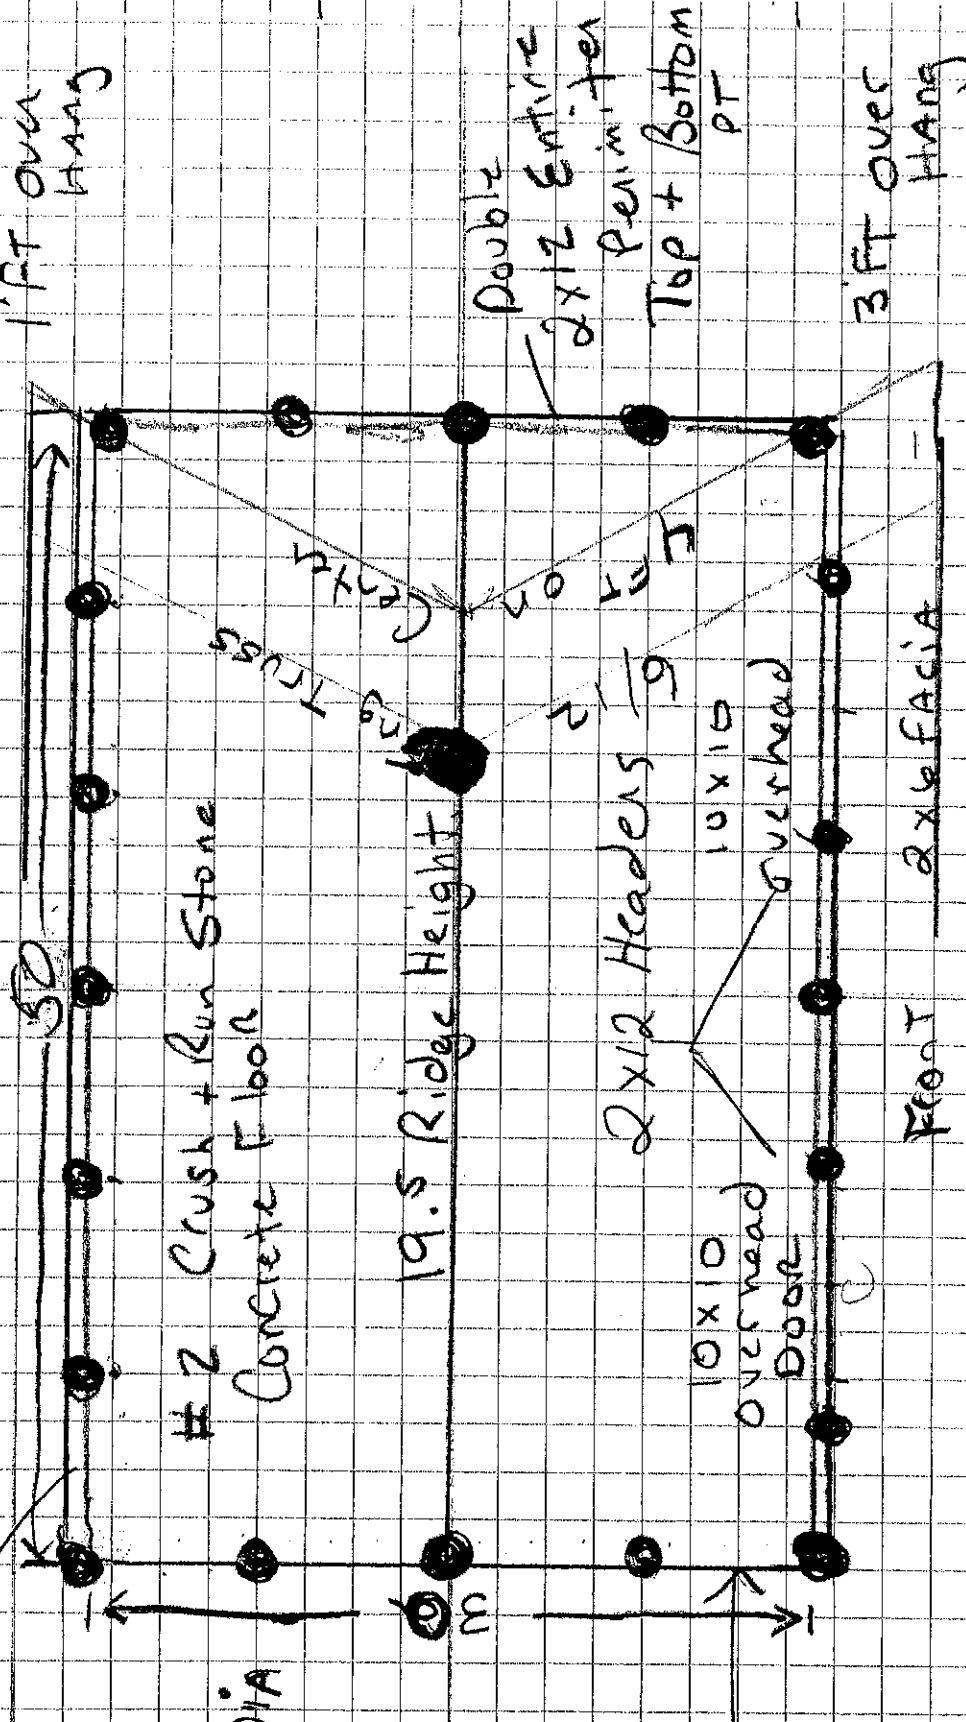 1 FT Over
HANg
50
Double
2x12 Entire
Perimiter
Top + Bottom
PT
3 FT Over
HANg
# 2 Crush + Run Stone
Concrete Floor
Truss
Center
on
19.5 Ridge Height
2x12 Headers
10x10
overhead
10x10
overhead
DOOR
2x6 FACiA
FronT
30